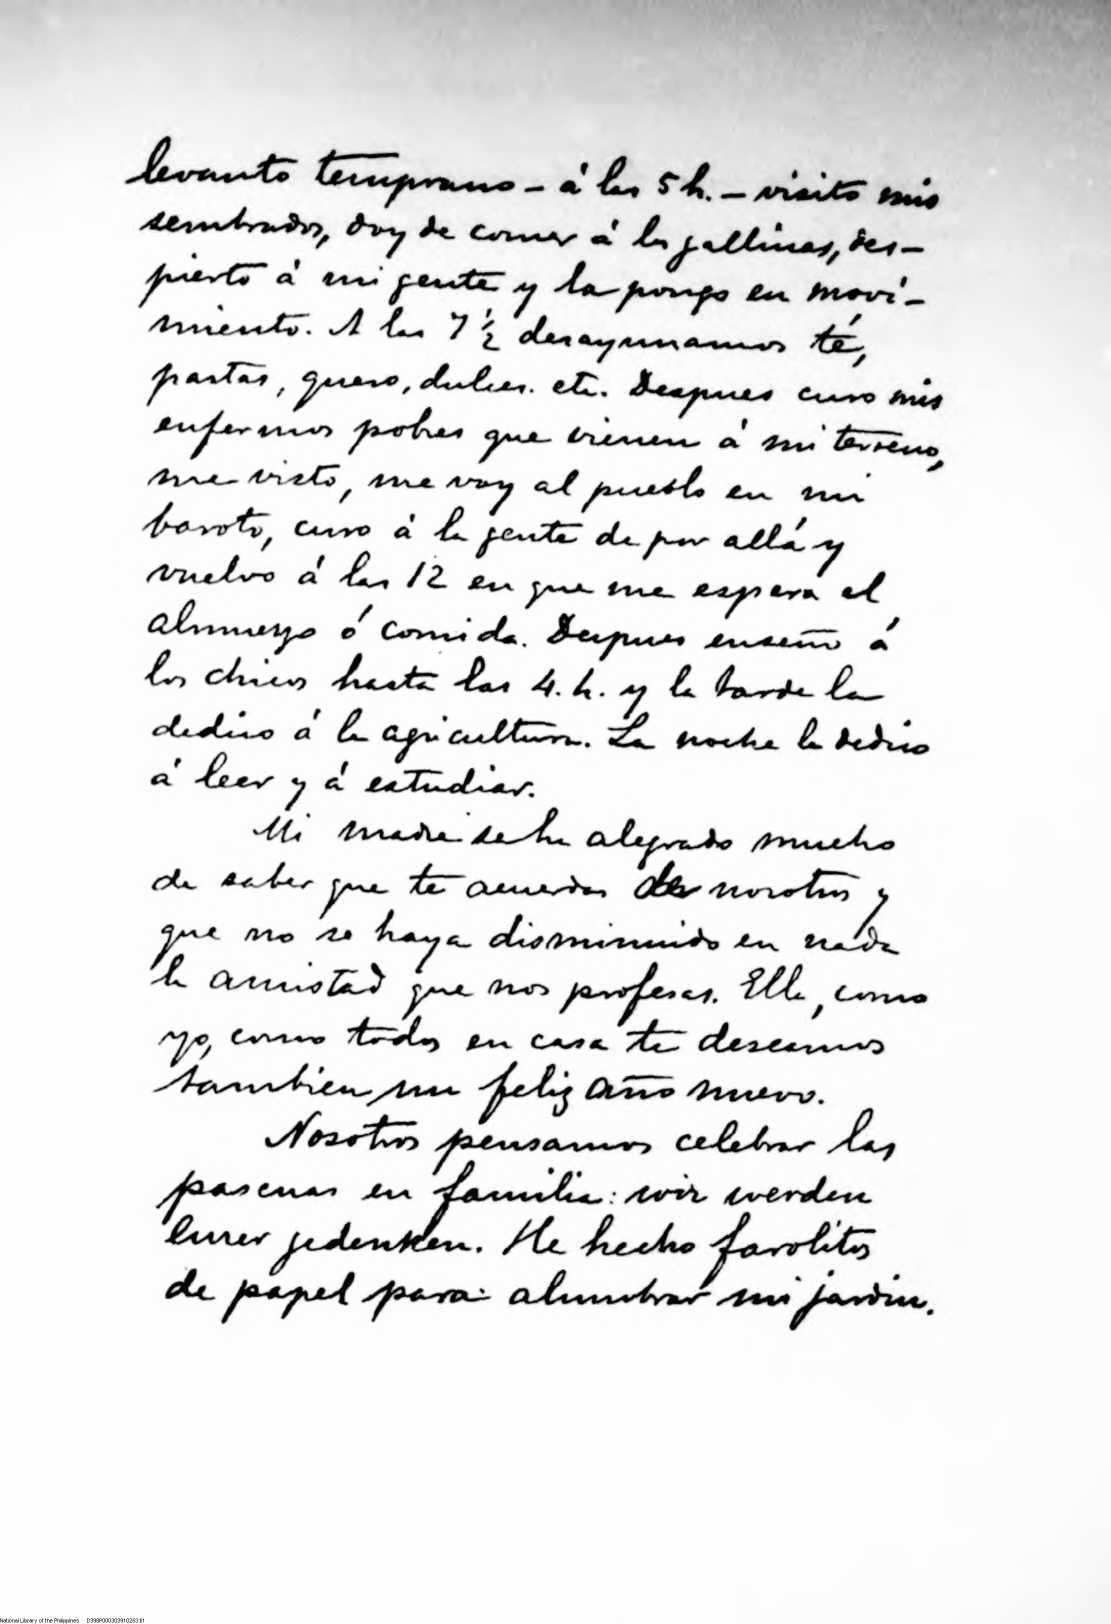 levanto temprano – á las 5 h. – visito mis
sembrados, doy de comer á las gallinas, des–
pierto á mi gente y la pongo en movi–
miento. A las 7 ½ desayunamos té,
pastas, queso, dulces. etc. Despues curo mis
enfermos pobres que vienen á mi terreno,
me visto, me voy al pueblo en mi
baroto, curo á la gente de por allá y
vuelvo á las 12 en que me espera el
almuerzo ó comida. Despues enseño á
los chicos hasta las 4. h. y la tarde la
dedico á la agricultura. La noche la dedico
á leer y á estudiar.
Mi madre se ha alegrado mucho
de saber que te acuerdas de nosotros y
que no se haya disminuido en nada
la amistad que nos profesas. Ella, como
yo, como todos en casa te deseamos
tambien un feliz año nuevo.
Nosotros pensamos celebrar las
pascuas en familia: wir werden
Eurer gedenken. He hecho farolitos
de papel para alumbrar mi jardin.
National Library of the Philippines